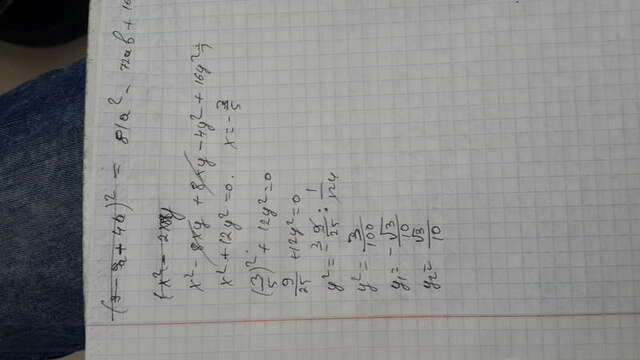 (3 - a + 4b)² = 81a² - 72ab + 16
(x² -
x² - 8xy + 8xy - 4y² + 16y² =
x² + 12y² = 0. x = -3/5
(3/5)² + 12y² = 0
9/25 + 12y² = 0
y² = -9/25 :
y² = 3/100
y₁ = -√3/10
y₂ = √3/10